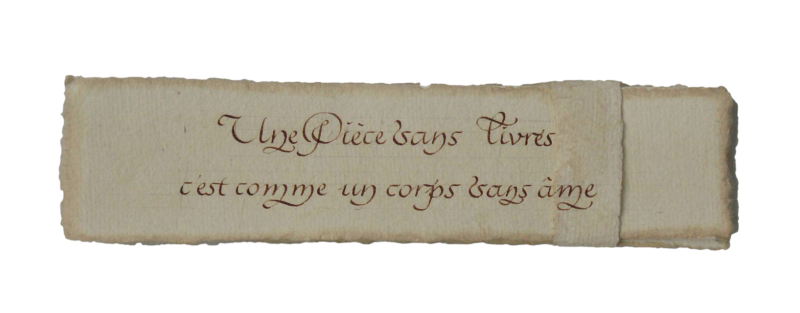 Une Pièce sans livres
c'est comme un corps sans âme